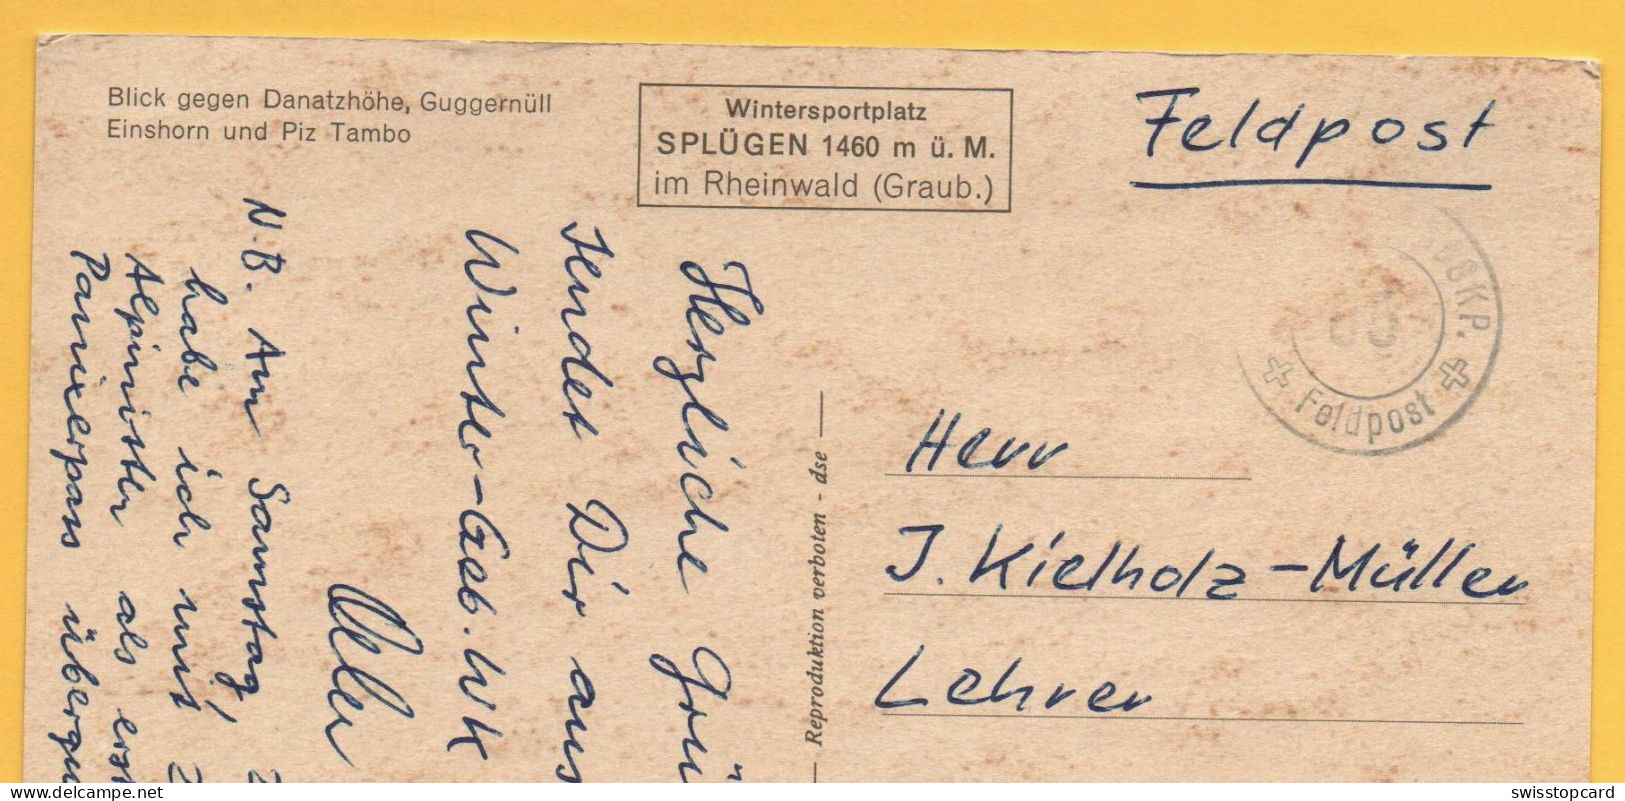 Blick gegen Danatzhöhe, Guggernüll
Einshorn und Piz Tambo
Wintersportplatz
SPLÜGEN 1460 m ü. M.
im Rheinwald (Graub.)
Feldpost
KP.
Feldpost
Herzliche
sendet Dir aus
Winter-Geb. WK
N.B. Am Samstag,
habe ich mit
Alpinister als
Panixerpass
Reproduktion verboten - dse
Herr
J. Kielholz-Müller
Lehrer
delcampe.net
swisstopcard